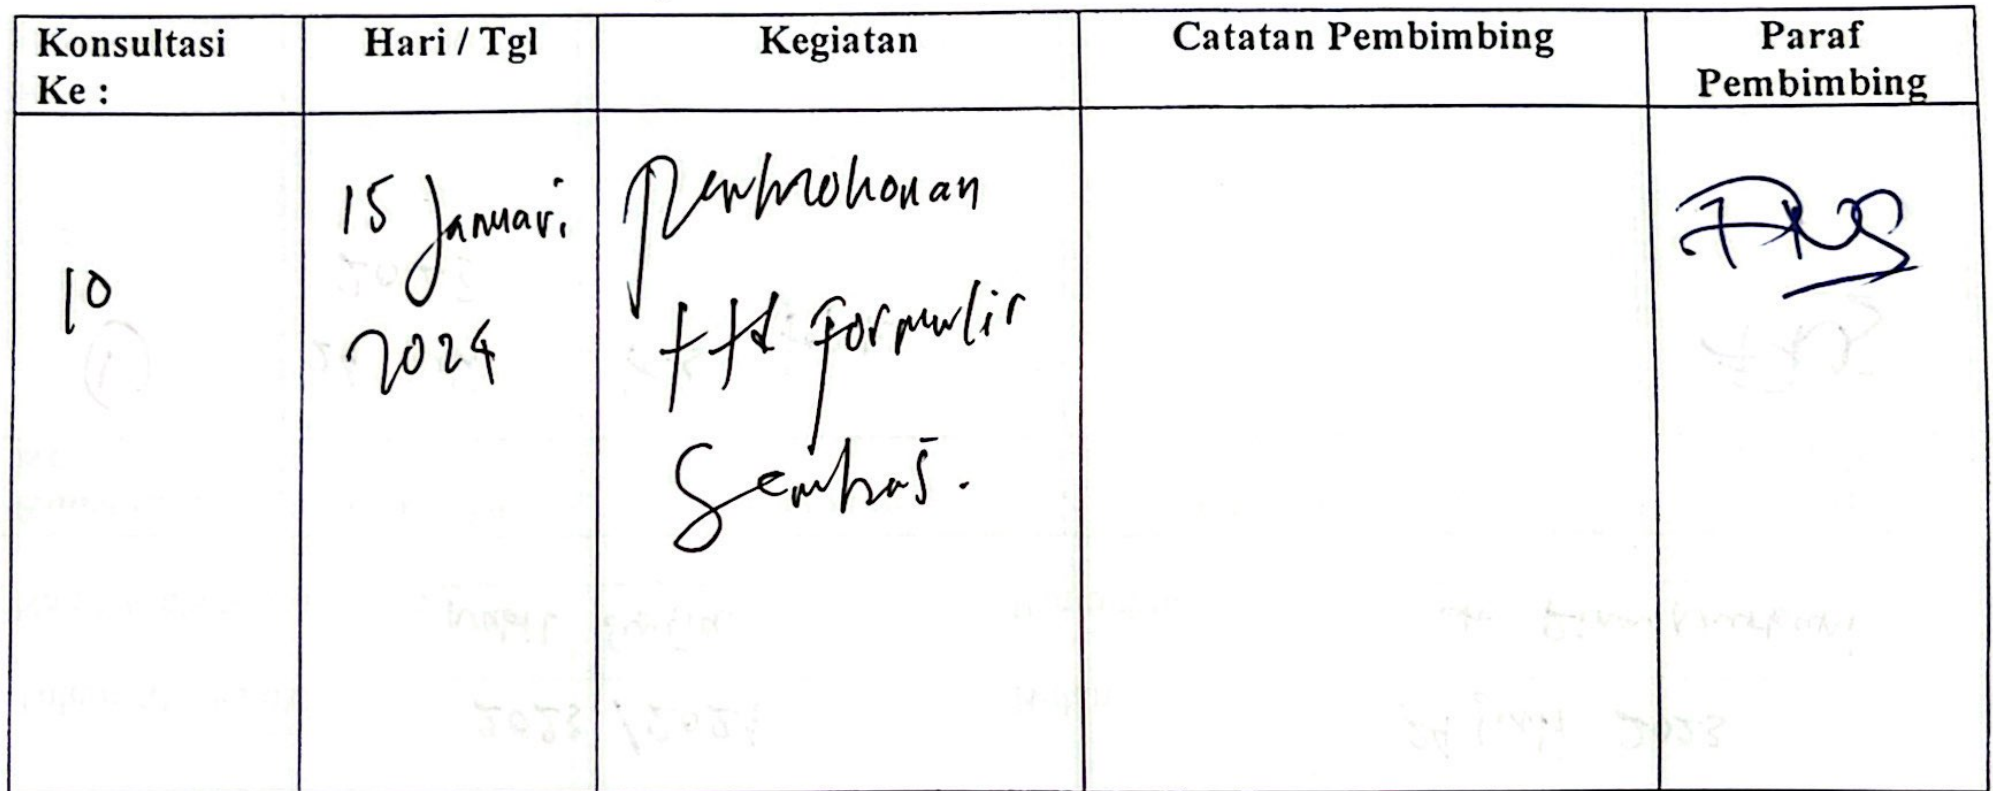 Konsultasi Ke :
Hari / Tgl
Kegiatan
Catatan Pembimbing
Paraf Pembimbing
10
15 Januari
2024
Permohonan
ttd formulir
Semhas.